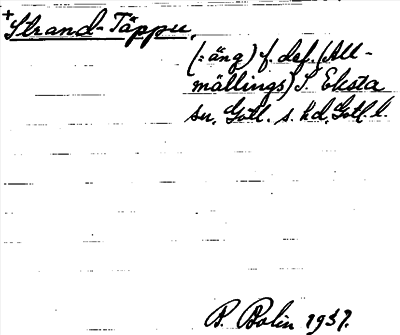 + Strand-Täppu,
(: äng) f. def. (All-
mällings) S. Eksta
sn, Gotl. s. hd, Gotl. l.
B. Bolin 1937.